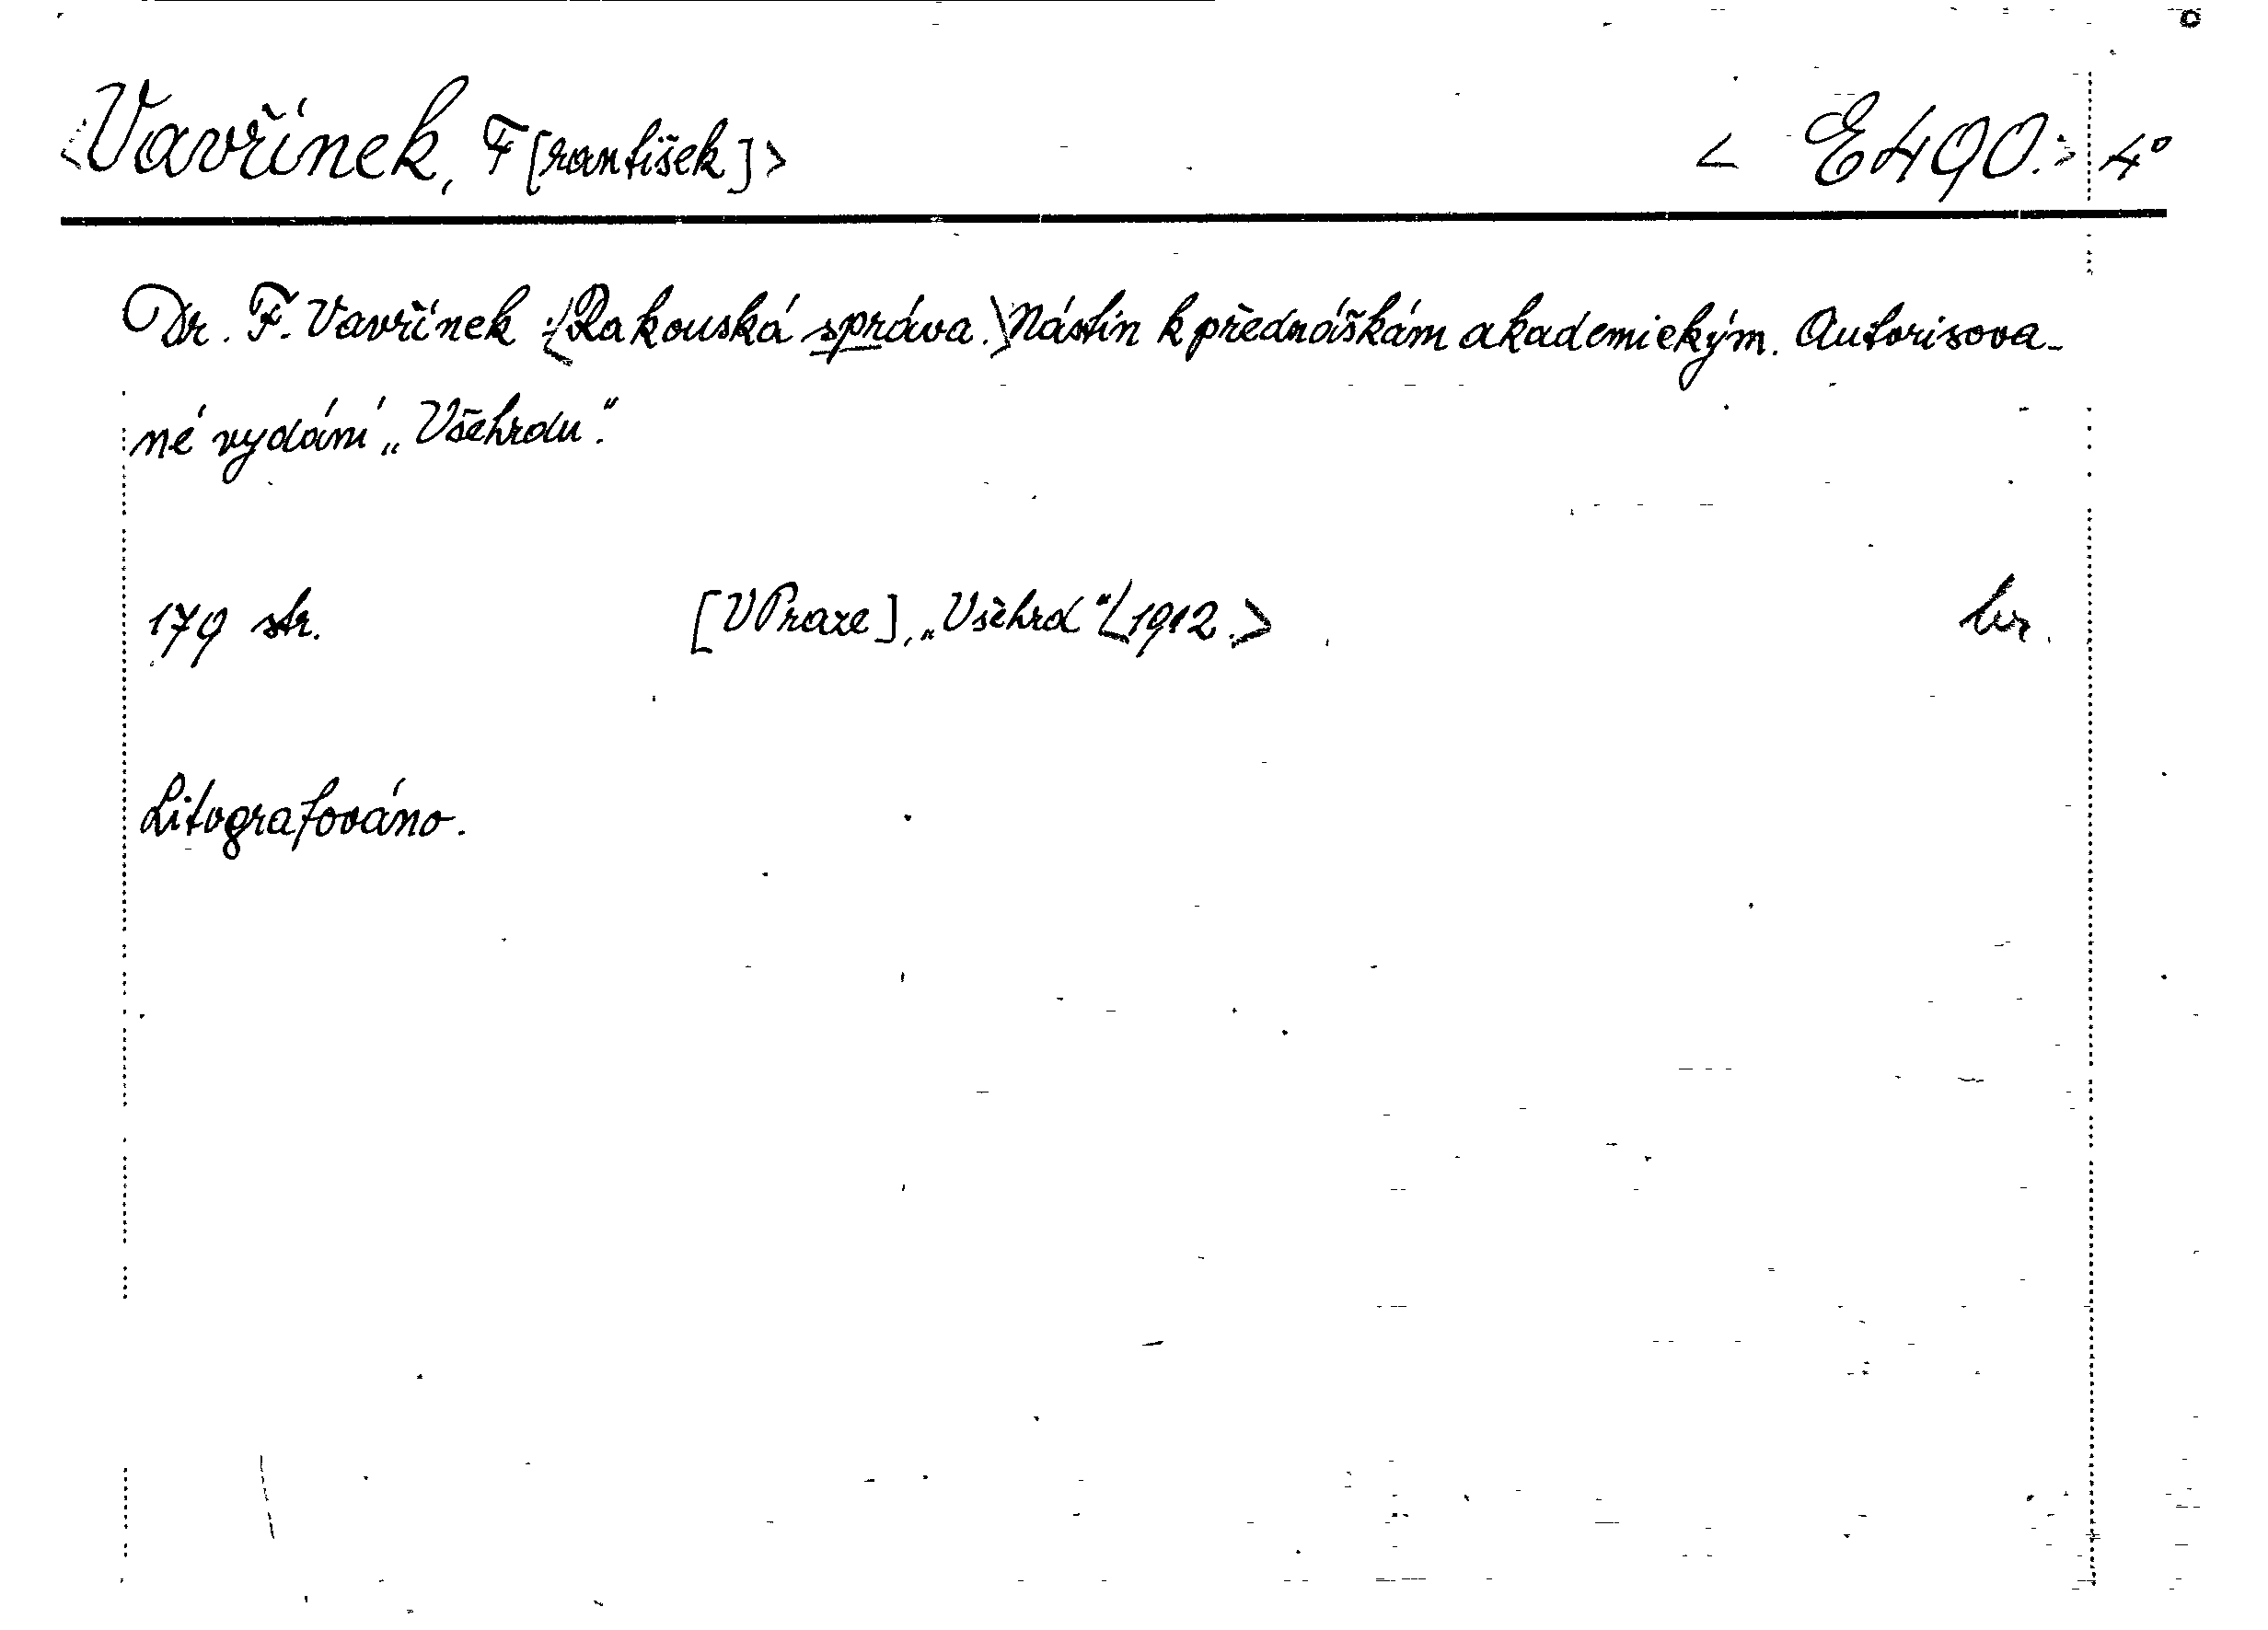 <Vavřínek, F[rantišek]> < E490.> 4°
Dr. F. Vavřínek :<Rakouská správa.> Nástin k přednáškám akademickým. Autorisova-
né vydání „Všehrdu".
179 str. [V Praze], „Všehrd" <1912.> br.
Litografováno.